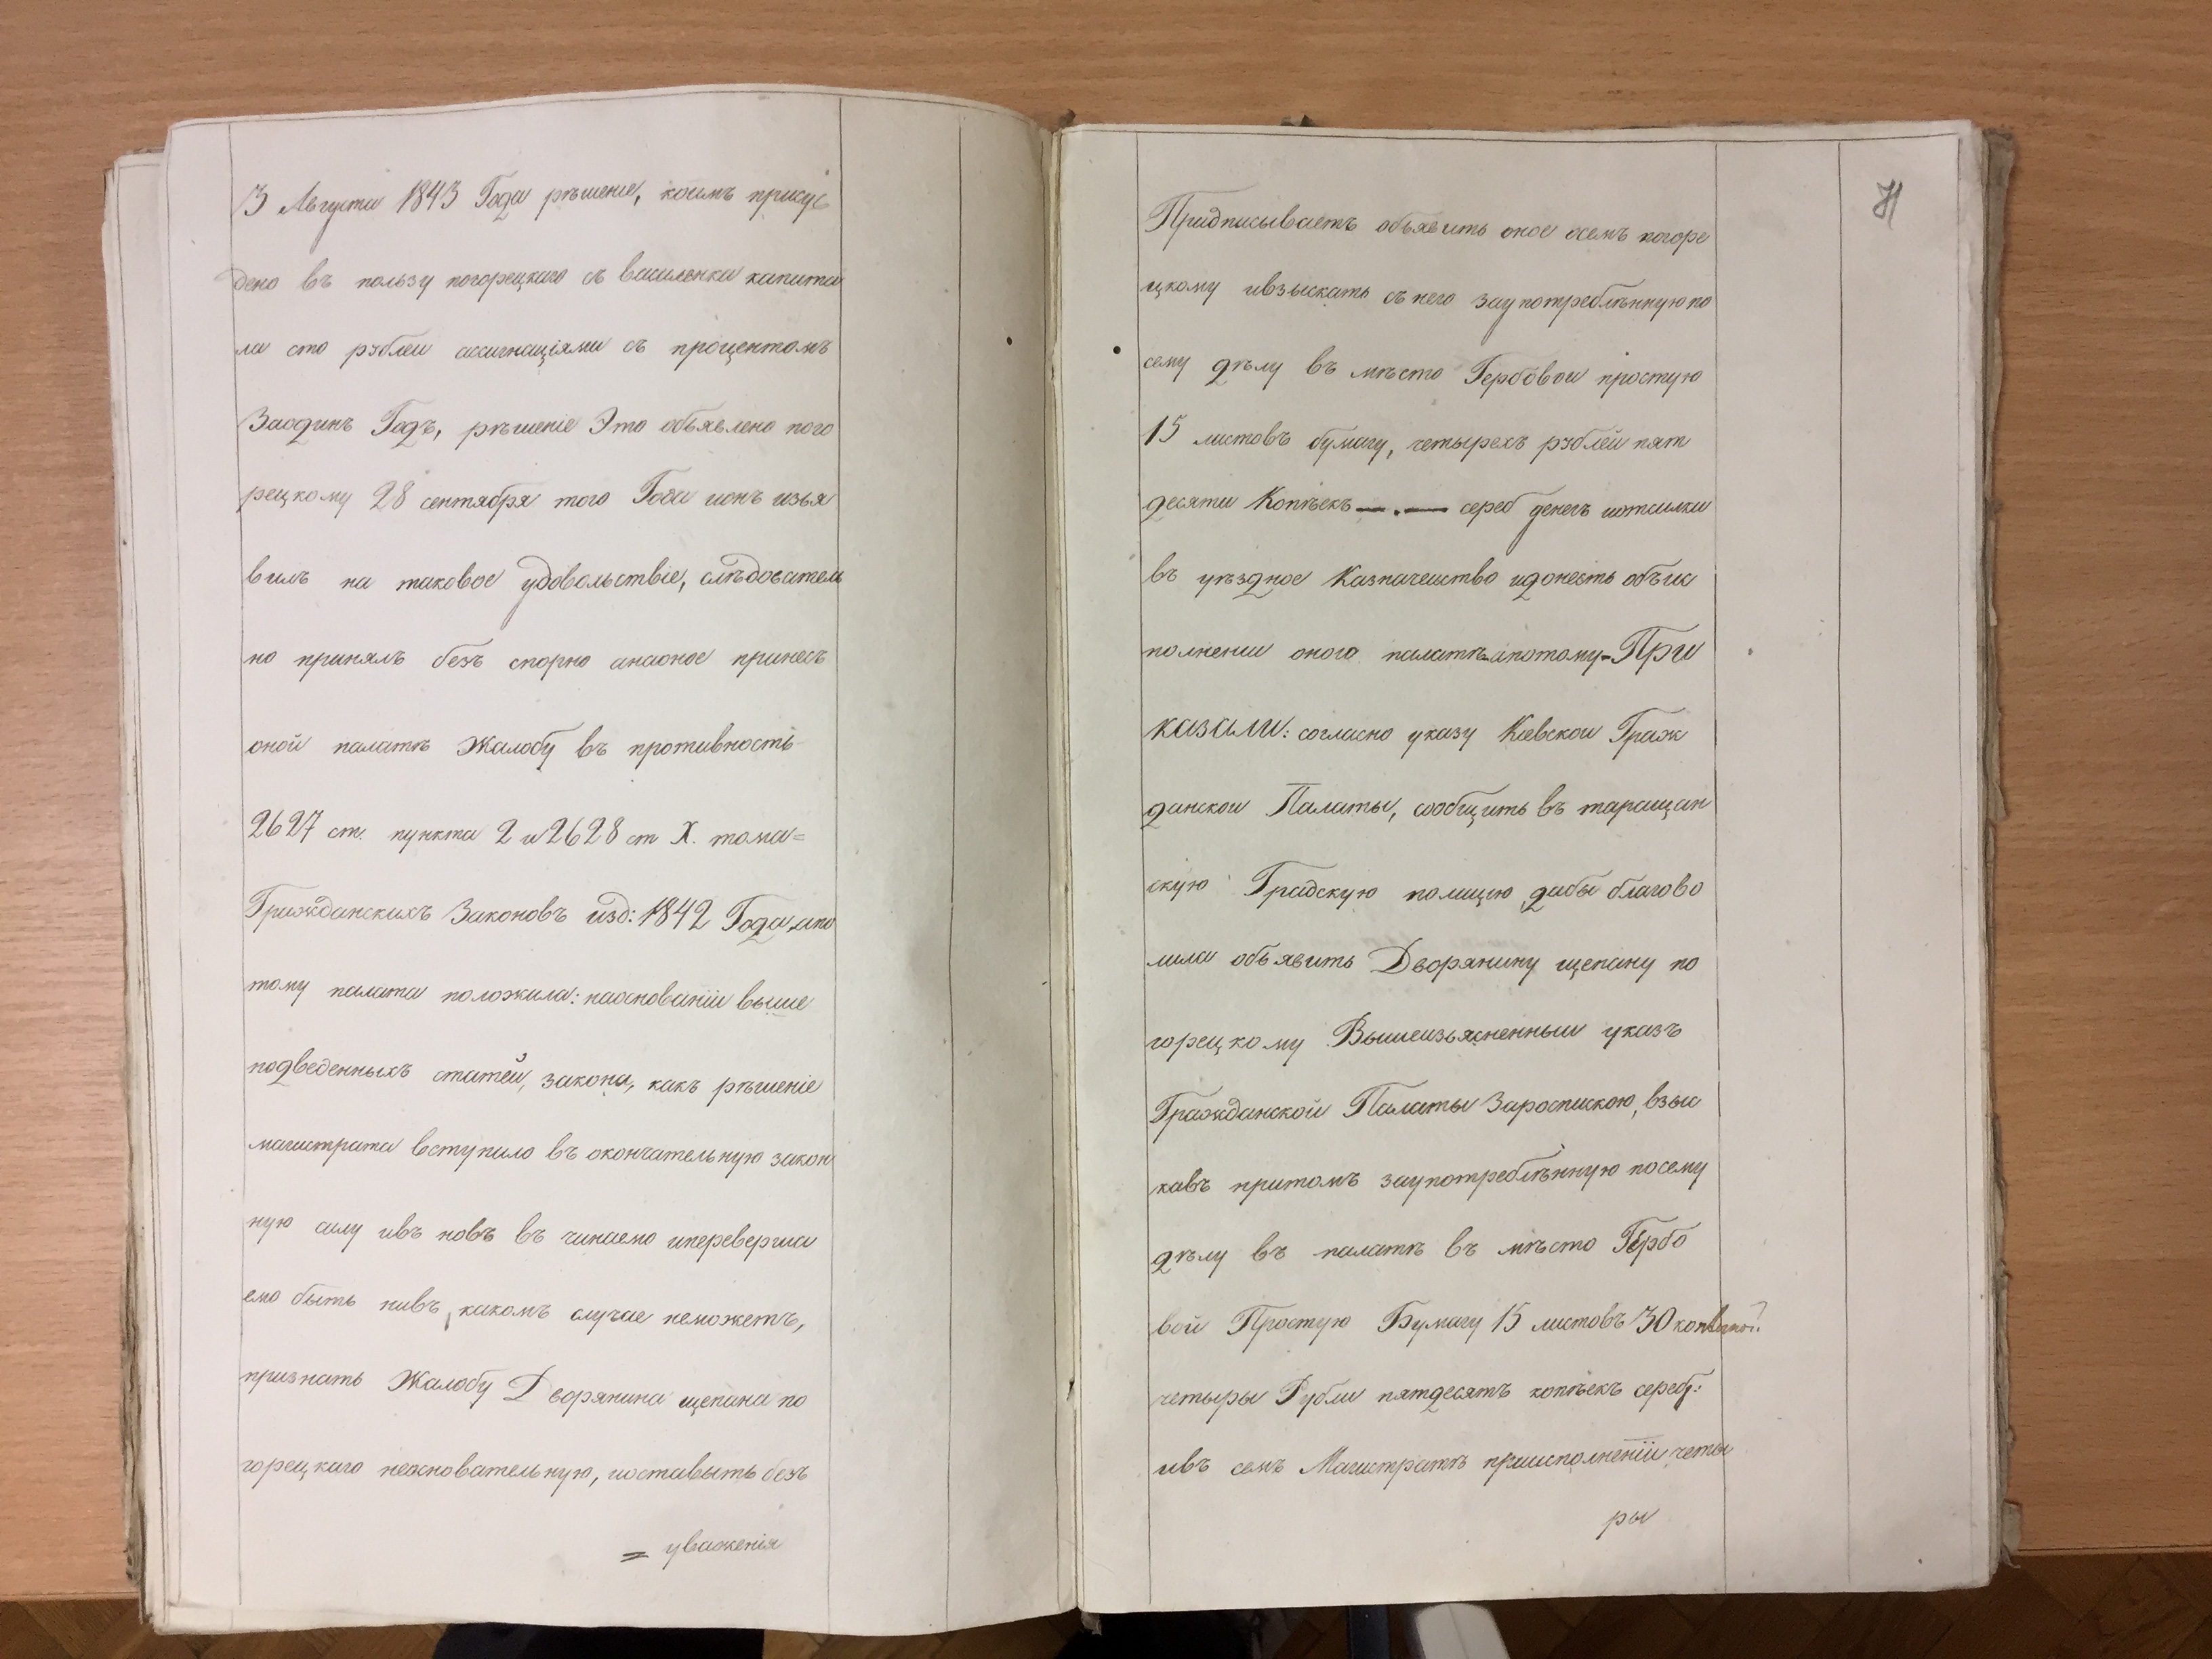 3 Августа 1843 Года рѣшеніе, коимъ присуж
дено въ пользу погорецкаго съ василенка капита
ла сто рублеи ассигнаціями съ процентомъ
Заодинъ Годъ, рѣшеніе Это объявлено пого
рецкому 28 сентября того Года ионъ изъя
вилъ на таковое удовольствіе, слѣдователь
но принялъ безъ спорно анаоное принесъ
оной палатѣ Жалобу въ противность
2627 ст. пункта 2 и 2628 ст X. тома=
Гражданскихъ Законовъ изд: 1842 Года, апо
тому палата положила: наоснованіи выше
подведенныхъ статей, закона, какъ рѣшеніе
магистрата вступило въ окончательную закон
ную силу ивъ новъ въ чинаемо иперевершa
емо быть нивъ какомъ случае неможетъ,
признать Жалобу Дворянина щепана по
горецкаго неосновательную, иоставыть безъ
= уваженія
71
Придписываетъ объявить оное осемъ погоре
цкому ивзыскать съ него заупотреблѣнную по
сему дѣлу въ мѣсто Гербовои простую
15 листовъ бумагу, четырехъ рублей пят
десяти Копѣекъ —.— сереб денегъ иотсилки
въ уѣздное Казначеиство идонесть объис
полнении оного палатѣ-апотому-При
казали: согласно указу Киевскои Граж
данскои Палаты, сообщить въ таращан
скую Градскую полицию дабы благово
лила объявить Дворянину щепану по
горецкому Вышеизьясненныи указъ
Гражданской Палаты ЗаросписKOю, взыс
кавъ притомъ заупотреблѣнную посему
дѣлу въ палатѣ въ мѣсто Гербо
вой Простую Бумагу 15 листовъ 30 коп
четыры Рубли пятдесятъ копѣекъ сереб:
ивъ семъ Магистратѣ приисполненіи четы
ры